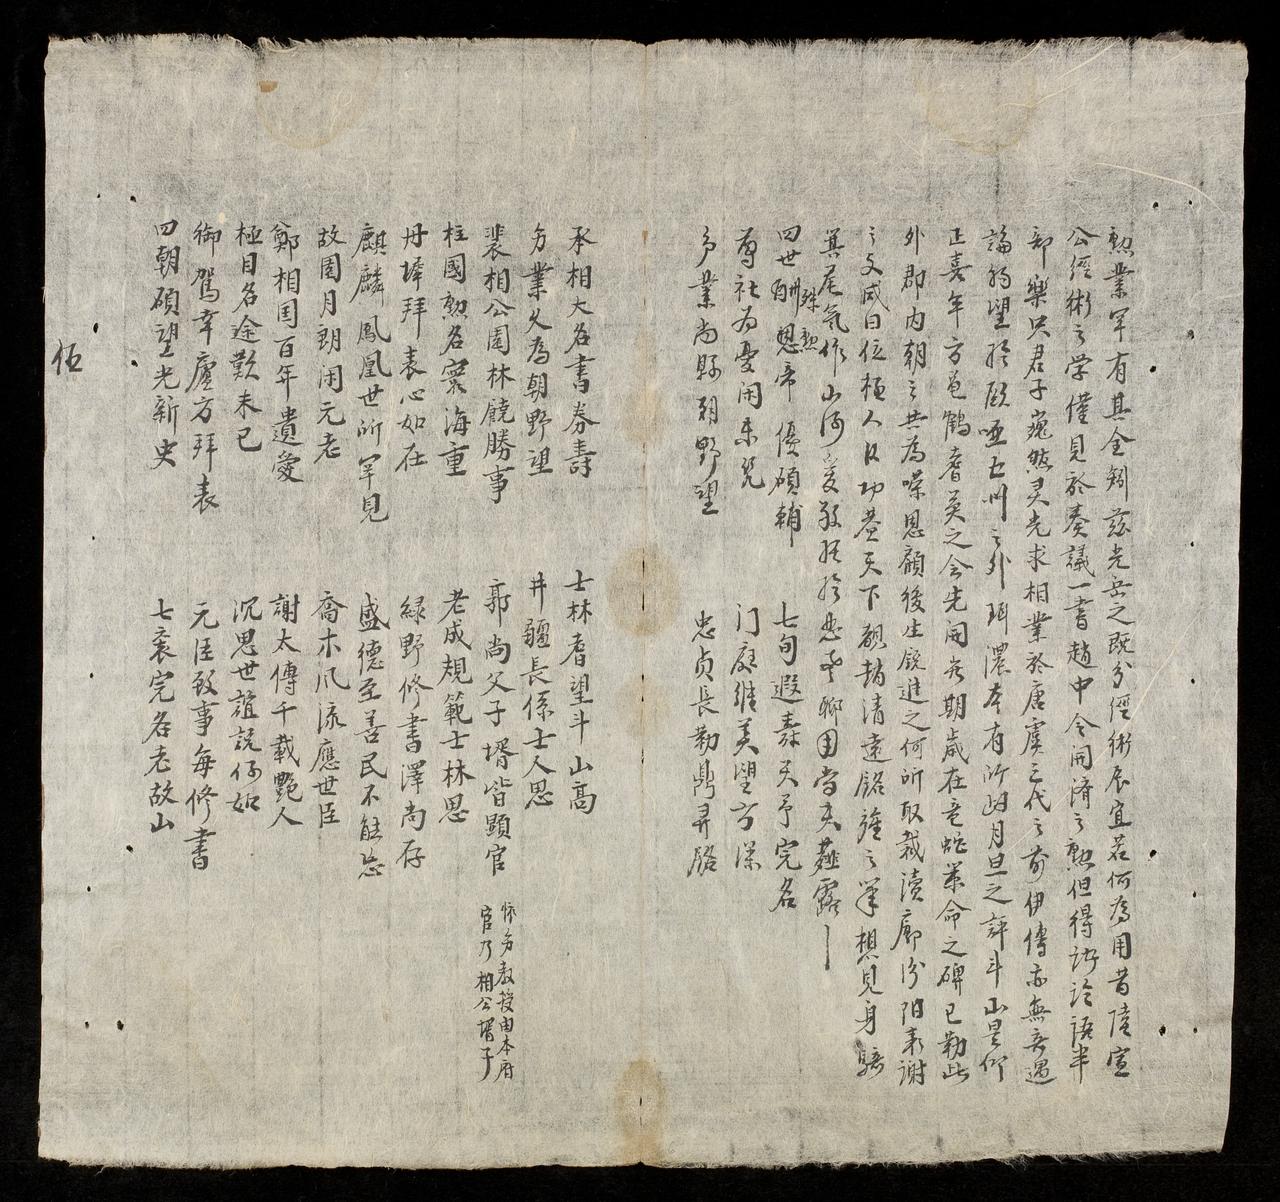 勲業罕有其全矧兹光岳之既分經術辰宜若何為用昔陸宣
公經術之学僅見於奏議一書趙中令開済之勲但得於論語半
部樂只君子巍然灵光求相業於唐虞三代之前伊傅亦無言遇
論物望於歐亞五州之外珥濃本有所凶月旦之評斗山景仰
正喜年方邑鶴耆英之会先開無期歳在竜蛇策命之碑已勒此
外郡内朝之共為噪恩顧後生銳進之何所取裁渎廊汾陽表謝
之文咸曰位極人臣功蓋天下碩趙清遠銘旌之筆想見身騎
箕尾氣作山河愛敬摅於忠孝聊困當夫薤露
四世酬殊勲恩帝優碩輔 七旬遐壽天予完名
為社為憂閒未覓 门庭維美望方深
旁業尚縣朝野望 忠贞長勒鼎昇銘
承相大名書券壽 士林耆望斗山高
旁業久為朝野望 井疆長係士人思
裴相公園林饒勝事 郭尚父子壻皆顯官 怀旁教授由本府官乃相公壻子
柱國勲名寰海重 老成規範士林思
丹墀拜表心如在 緑野修書澤尚存
麒麟鳳凰世所罕見 盛德至善民不能忘
故園月朗闲元老 喬木风流應世臣
鄭相国百年遺愛 謝太傅千載艷人
極目名途歎未已 沉思世誼説仔如
御駕幸廬方拜表 元臣致事每修書
四朝碩望光新史 七袠完名老故山
伍